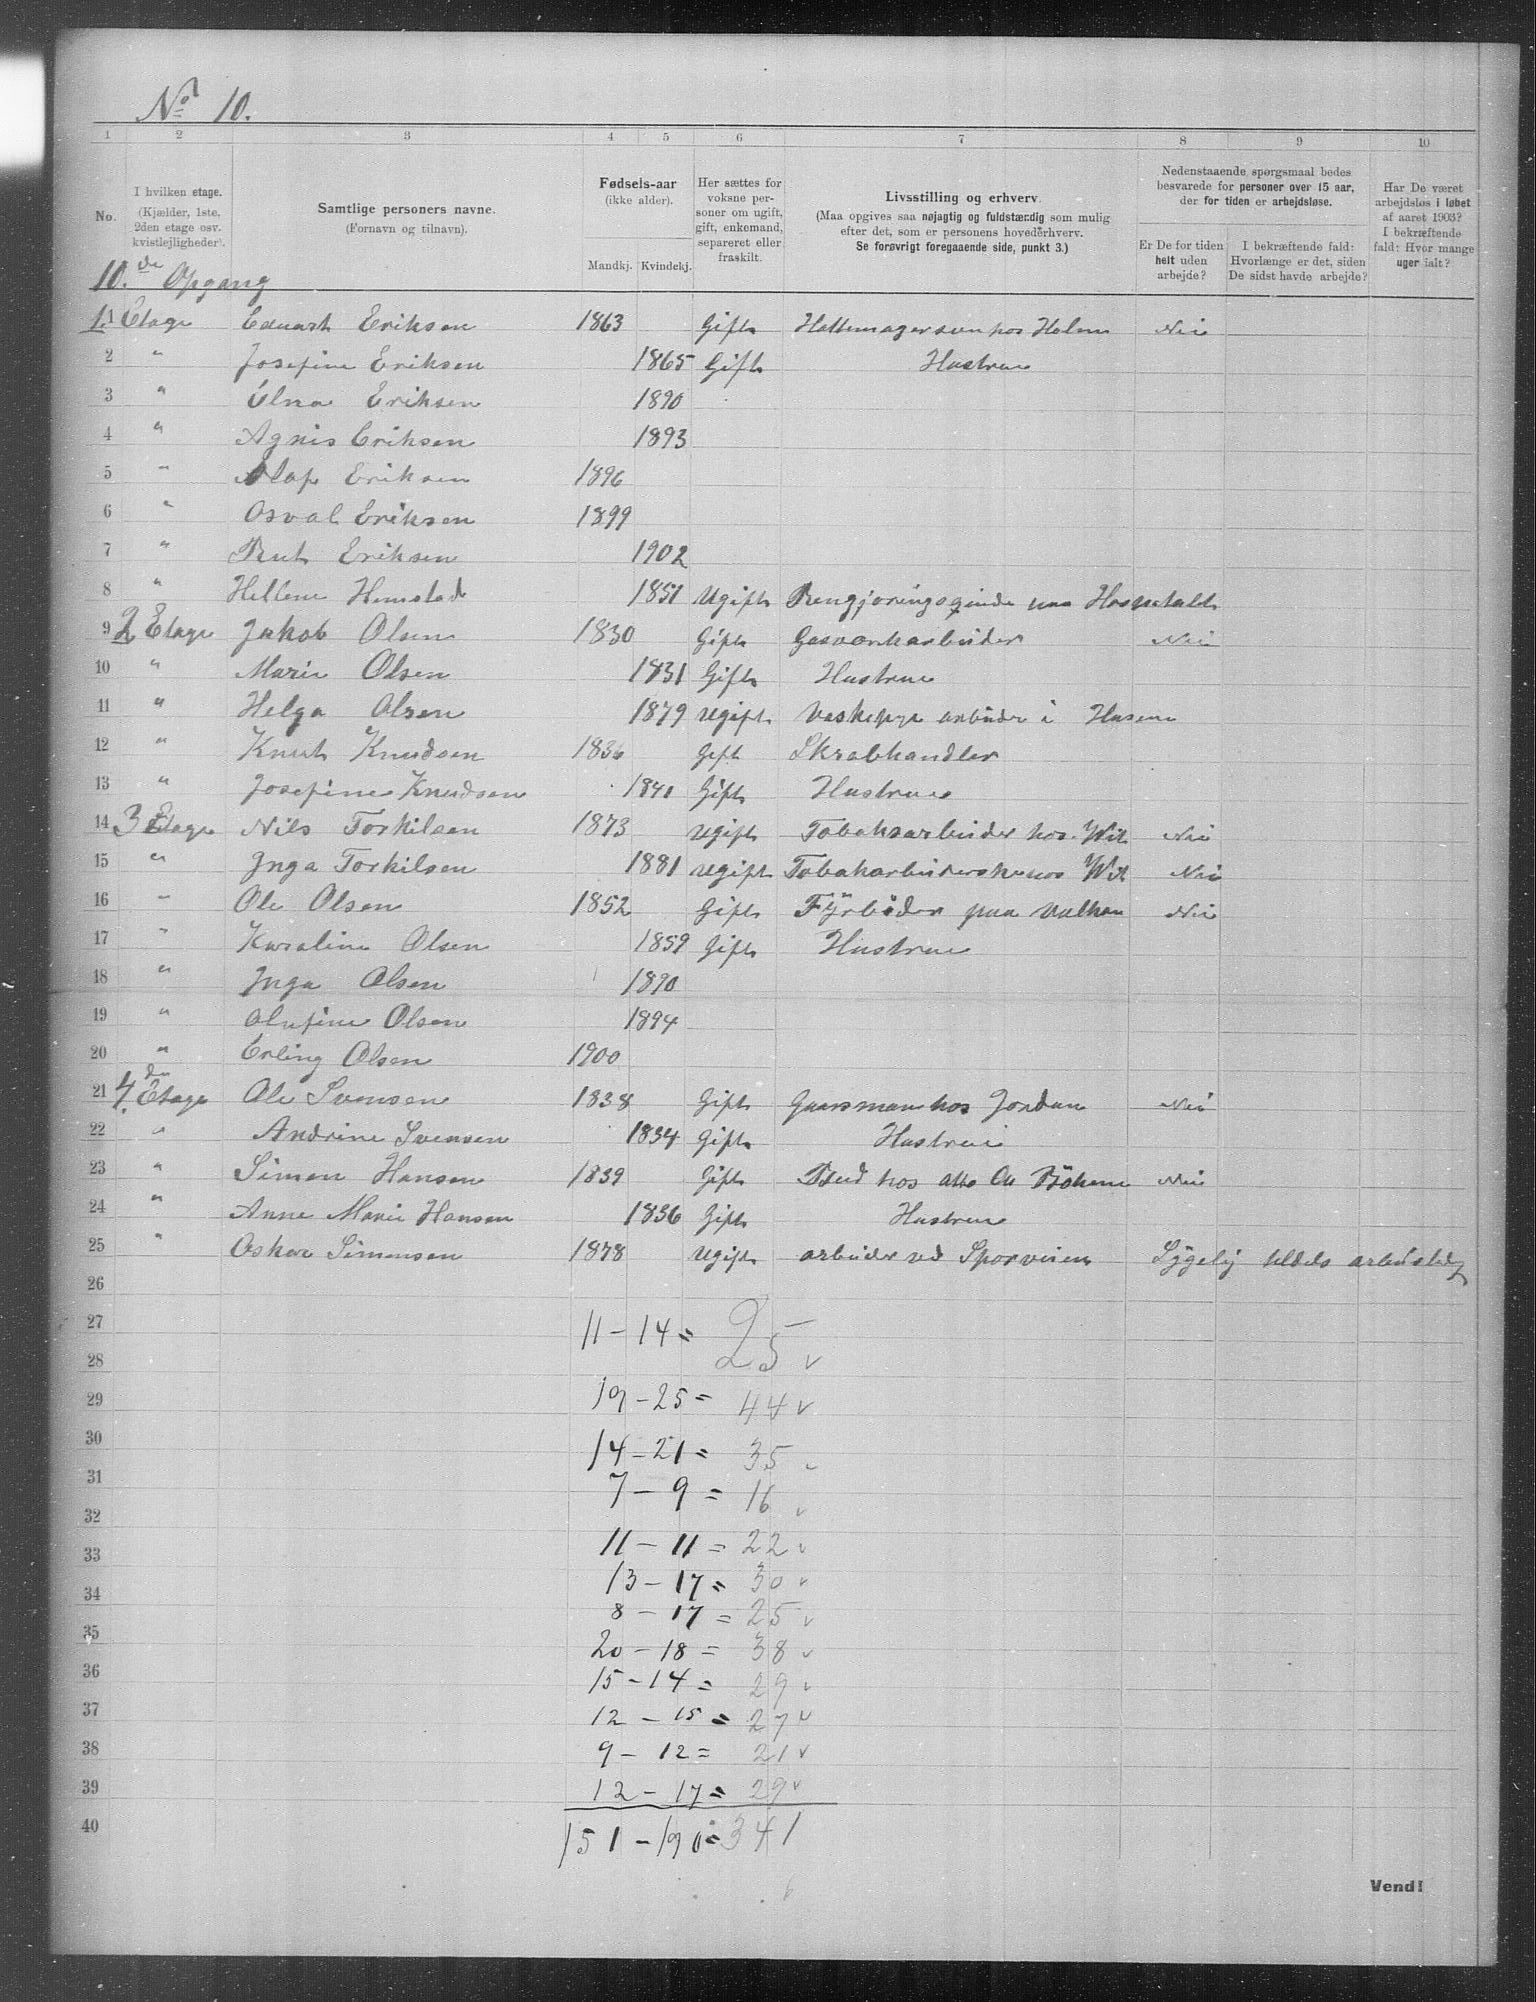 No 10.
1 2 3 4 5 6 7 8 9 10
No.
I hvilken etage.
(Kjælder, 1ste,
2den etage osv.
kvistlejligheder).
Samtlige personers navne.
(Fornavn og tilnavn).
Fødsels-aar
(ikke alder).
Mandkj. Kvindekj.
Her sættes for
voksne per-
soner om ugift,
gift, enkemand,
separeret eller
fraskilt.
Livsstilling og erhverv.
(Maa opgives saa nøjagtig og fuldstændig som mulig
efter det, som er personens hovederhverv.
Se forøvrigt foregaaende side, punkt 3.)
Nedenstaaende spørgsmaal bedes
besvarede for personer over 15 aar,
der for tiden er arbejdsløse.
Er De for tiden
helt uden
arbejde?
I bekræftende fald:
Hvorlænge er det, siden
De sidst havde arbejde?
Har De været
arbejdsløs i løbet
af aaret 1903?
I bekræftende
fald: Hvor mange
uger ialt?
10. de Opgang
1 1. Etage Eduart Eriksen 1863 Gift Hattemagersven hos Holm Nei
2 " Josefine Eriksen 1865 Gift Hustrue
3 " Elna Eriksen 1890
4 " Agnis Eriksen 1893
5 " Olaf Eriksen 1896
6 " Osval Eriksen 1899
7 " Rut Eriksen 1902
8 " Hellene Hemstad 1851 Ugift Rengjøringsqinde paa Hospetalet
9 2 Etage Jakob Olsen 1830 Gift Gasværkarbeider Nei
10 " Marie Olsen 1831 Gift Hustrue
11 " Helga Olsen 1879 Ugift Vaskepge arbeider i Husene
12 " Knut Knudsen 1836 Gift Skrabhandler
13 " Josefine Knudsen 1841 Gift Hustrue
14 3 Etage Nils Torkilsen 1873 ugift Tobaksarbeider hos Wit Nei
15 " Inga Torkilsen 1881 ugift Tobakarbeiderske hos Wit Nei
16 " Ole Olsen 1852 Gift Fyrbøder paa Vulkan Nei
17 " Karaline Olsen 1859 Gift Hustrue
18 " Inga Olsen 1890
19 " Olufine Olsen 1894
20 " Erling Olsen 1900
21 4. de Etage Ole Svensen 1838 Gift Gaarsman hos Jordan Nei
22 " Andrine Svensen 1834 Gift Hustrue
23 " Simon Hansen 1839 Gift Bud hos Nei
24 " Anne Marie Hansen 1836 Gift Hustrue
25 " Oskar Simensen 1878 Ugift arbeider ved Sporveien Sygelig
26
27
11 – 14 = 25
28
29 19 – 25 = 44
30 14 – 21 = 35
31 7 – 9 = 16
32
33 11 – 11 = 22
34 13 – 17 = 30
35 8 – 17 = 25
20 – 18 = 38
36 15 – 14 = 29
37 12 – 15 = 27
38 9 – 12 = 21
39 12 – 17 = 29
40 151 – 190 = 341
Vend!